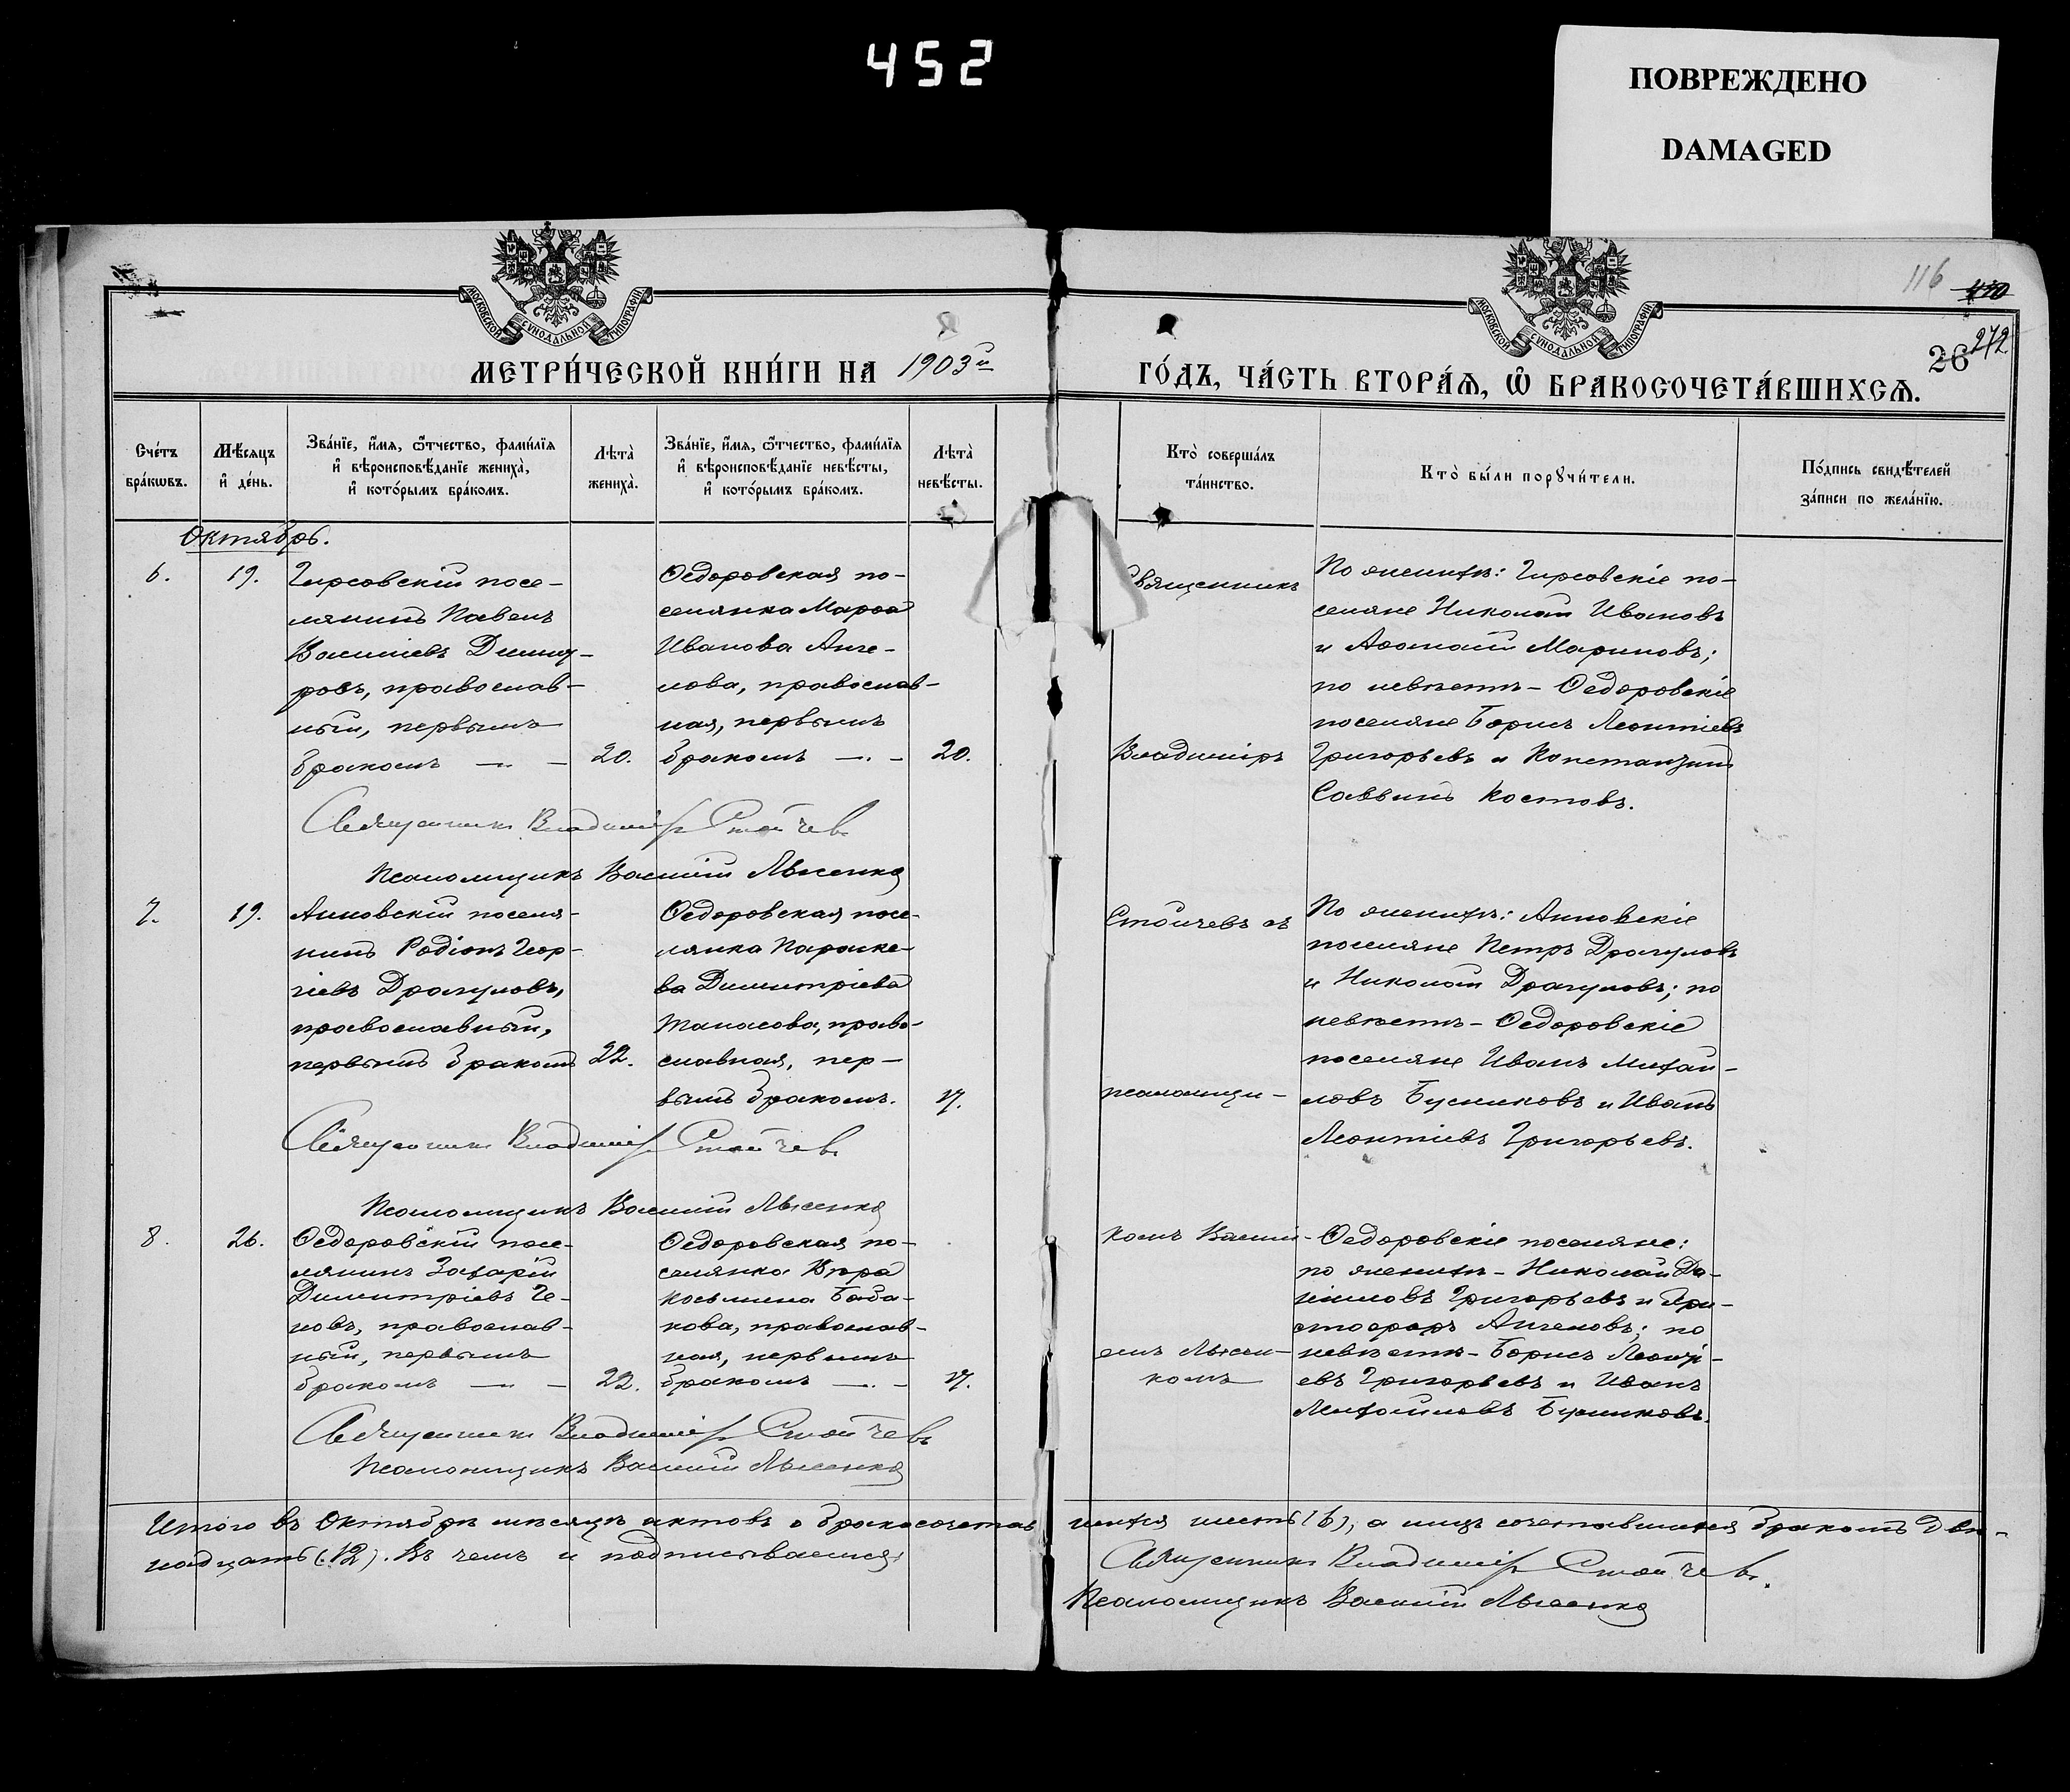 452
ПОВРЕЖДЕНО
DAMAGED
МОСКОВСКОЙ СУНОДАЛЬНОЙ ТИПОГРАФІИ
МОСКОВСКОЙ СУНОДАЛЬНОЙ ТИПОГРАФІИ
116 410
26 272
МЕТРИ́ЧЕСКОЙ КНИ́ГИ НА 1903й
ГО́ДЪ, ЧА́СТЬ ВТОРА́Ѧ, Ѽ БРАКОСОЧЕТА́ВШИХСѦ.
Сче́тъ
бра́кѡвъ.
Мѣ́сяцъ
и҆ де́нь.
Зва́нїе, и҆́мя, ѻ҆́тчество, фами́лїя
и҆ вѣроисповѣ́данїе жениха̀,
и҆ кото́рымъ бра́комъ.
Лѣта̀
жениха̀.
Зва́нїе, и҆́мя, ѻ҆́тчество, фами́лїя
и҆ вѣроисповѣ́данїе невѣ́сты,
и҆ кото́рымъ бра́комъ.
Лѣта̀
невѣ́сты.
Кто̀ соверша́лъ
та́инство.
Кто̀ бы́ли порꙋчи́тели.
По́дпись свидѣ́телей
за́писи по жела́нїю.
Октябрь.
6.
19.
Гирсовскій посе-
лянинъ Павелъ
Василіевъ Димит-
ровъ, православ-
ный, первымъ
бракомъ
20.
Ѳедоровская по-
селянка Марѳа
Иванова Анге-
лова, православ-
ная, первымъ
бракомъ
20.
Священникъ
Владиміръ
По женихѣ: Гирсовскіе по-
селяне Николай Ивановъ
и Аѳанасій Мариновъ;
по невѣстѣ - Ѳедоровскіе
поселяне Борисъ Леонтіевъ
Григорьевъ и Константинъ
Саввинъ Костовъ.
Священникъ Владиміръ Стойчевъ
Псаломщикъ Василій Лысенко
7.
19.
Анновскій поселя-
нинъ Родіонъ Геор-
гіевъ Драгуловъ,
православный,
первымъ бракомъ
22.
Ѳедоровская посе-
лянка Параске-
ва Димитріева
Танасова, право-
славная, пер-
вымъ бракомъ.
17.
Стойчевъ съ
псаломщи-
По женихѣ: Анновскіе
поселяне Петръ Драгуловъ
и Николай Драгуловъ; по
невѣстѣ - Ѳедоровскіе
поселяне Иванъ Михаи-
ловъ Бусниковъ и Иванъ
Леонтіевъ Григорьевъ.
Священникъ Владиміръ Стойчевъ
Псаломщикъ Василій Лысенко
8.
26.
Ѳедоровскій посе-
лянинъ Захарій
Димитріевъ Че-
новъ, православ-
ный, первымъ
бракомъ
22.
Ѳедоровская по-
селянка Вѣра
Косьмина Баба-
кова, православ-
ная, первымъ
бракомъ
17.
комъ Василі-
емъ Лысен-
комъ
Ѳедоровскіе поселяне:
по женихѣ - Николай Да-
ніиловъ Григорьевъ и Хри-
стофоръ Ангеловъ; по
невѣстѣ - Борисъ Леонті-
евъ Григорьевъ и Иванъ
Михаиловъ Бусниковъ.
Священникъ Владиміръ Стойчевъ
Псаломщикъ Василій Лысенко
Итого въ Октябрѣ мѣсяцѣ актовъ о бракосочетав шихся шесть (6), а лицъ сочетавшихся бракомъ две-
надцать (12). Въ чемъ и подписываемся:
Священникъ Владиміръ Стойчевъ.
Псаломщикъ Василій Лысенко